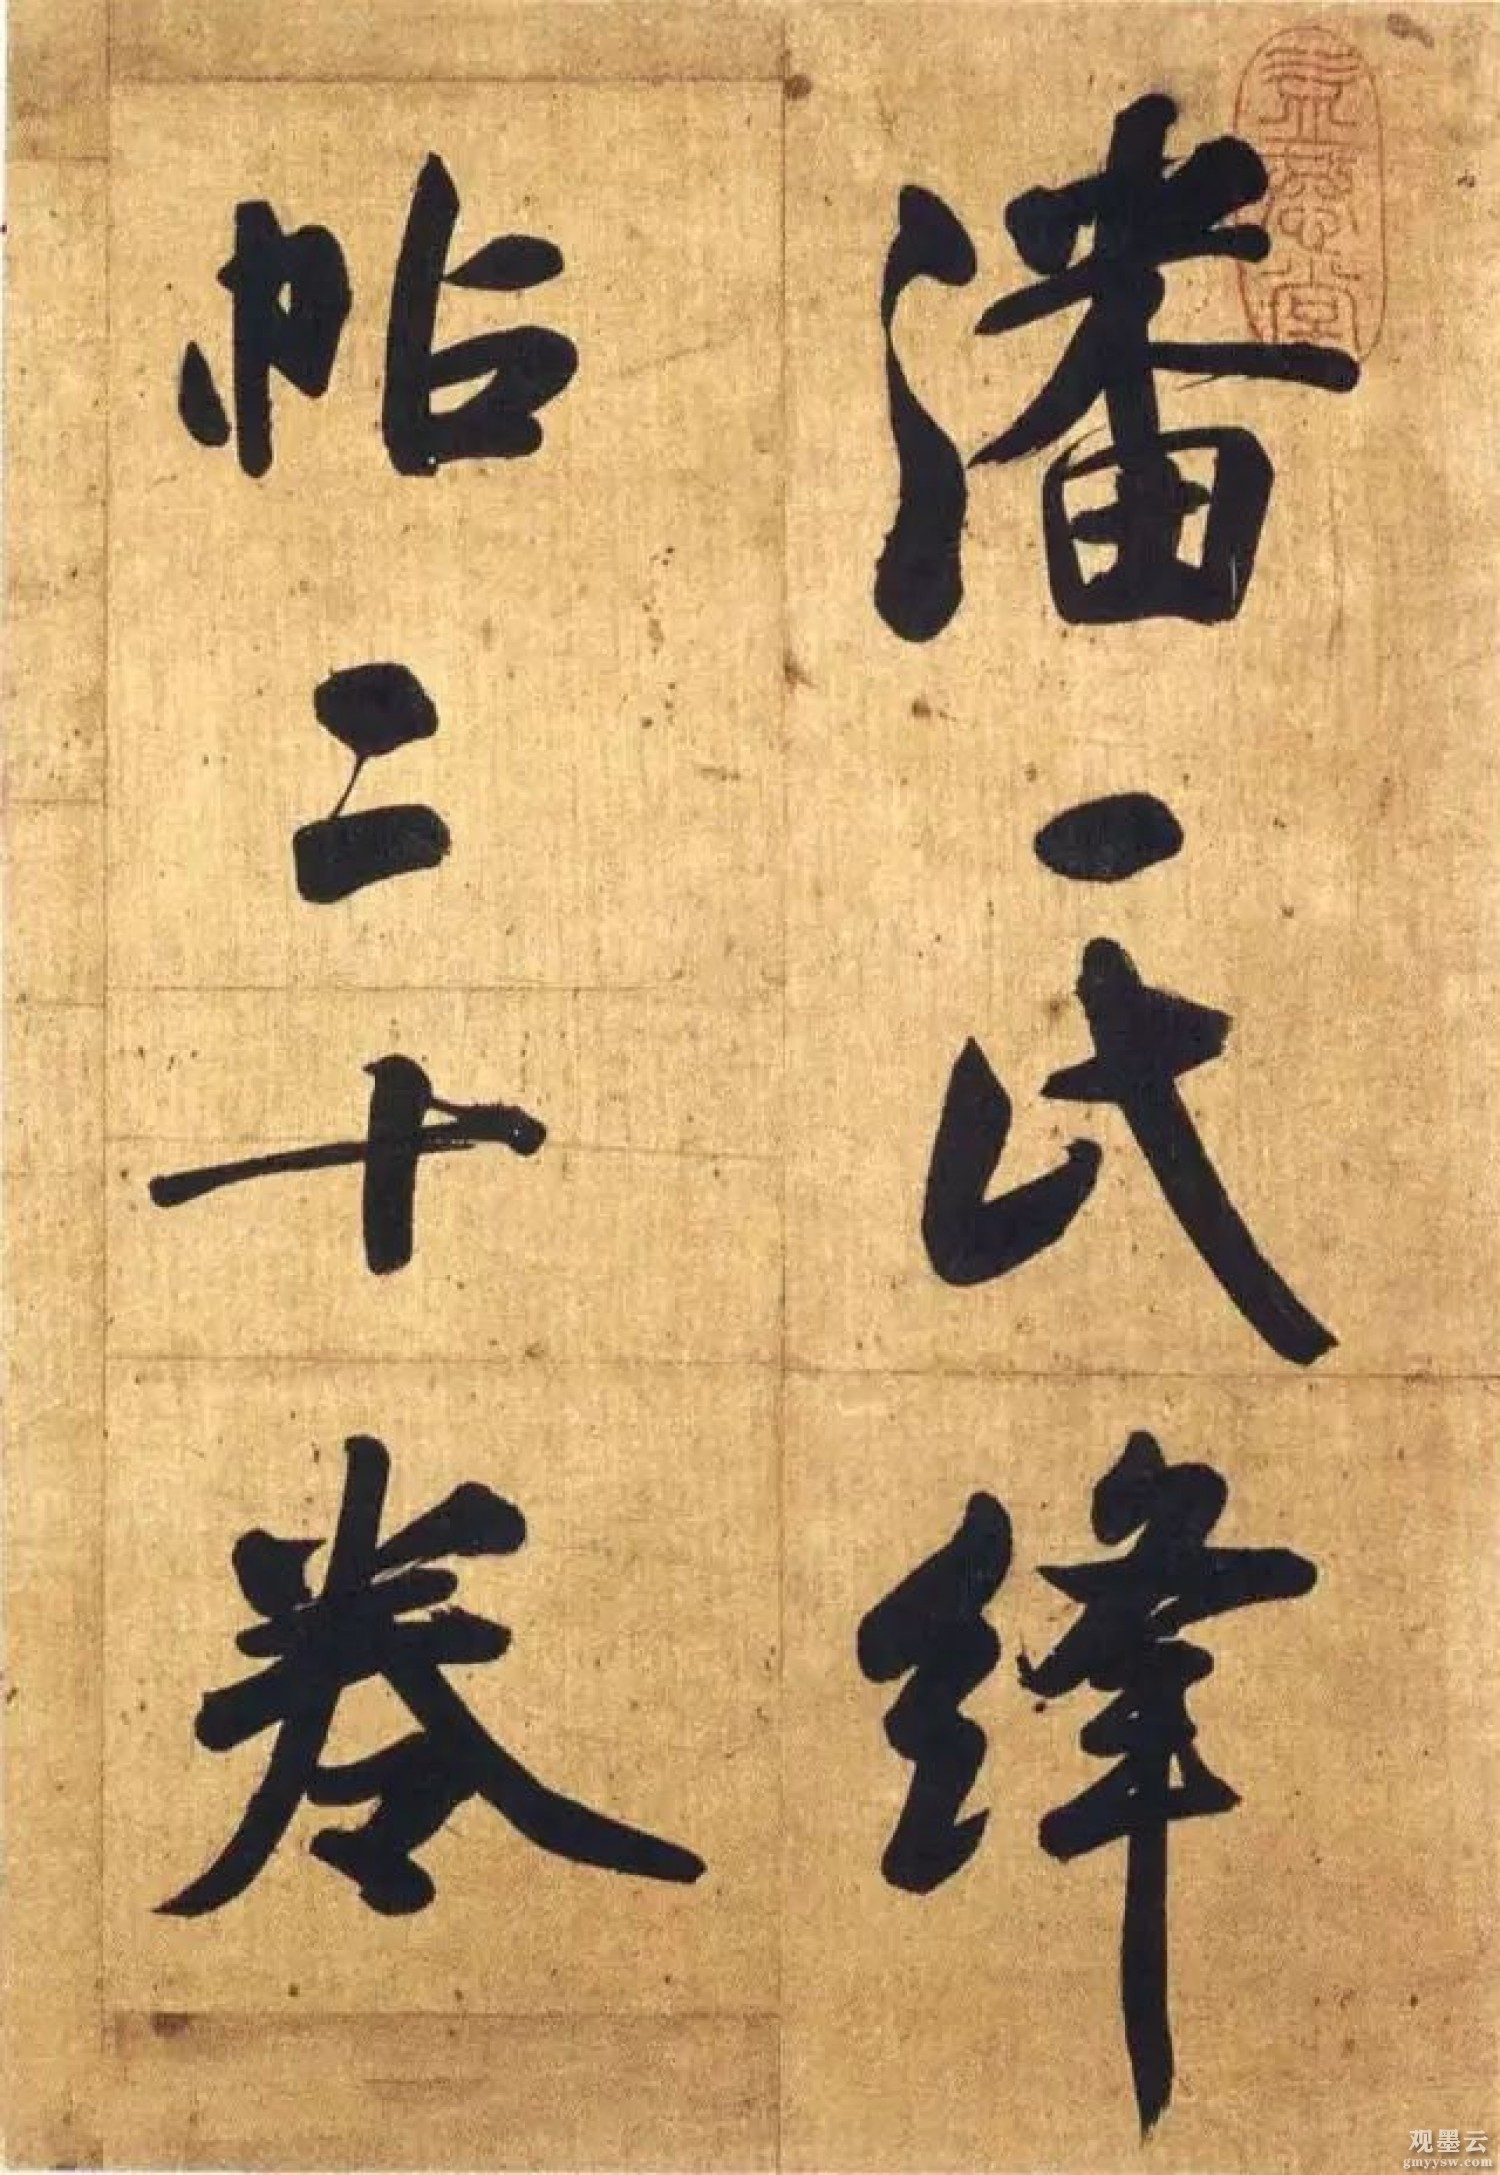 潘一氏絳
帖二十卷
观墨云
gmyysw.com